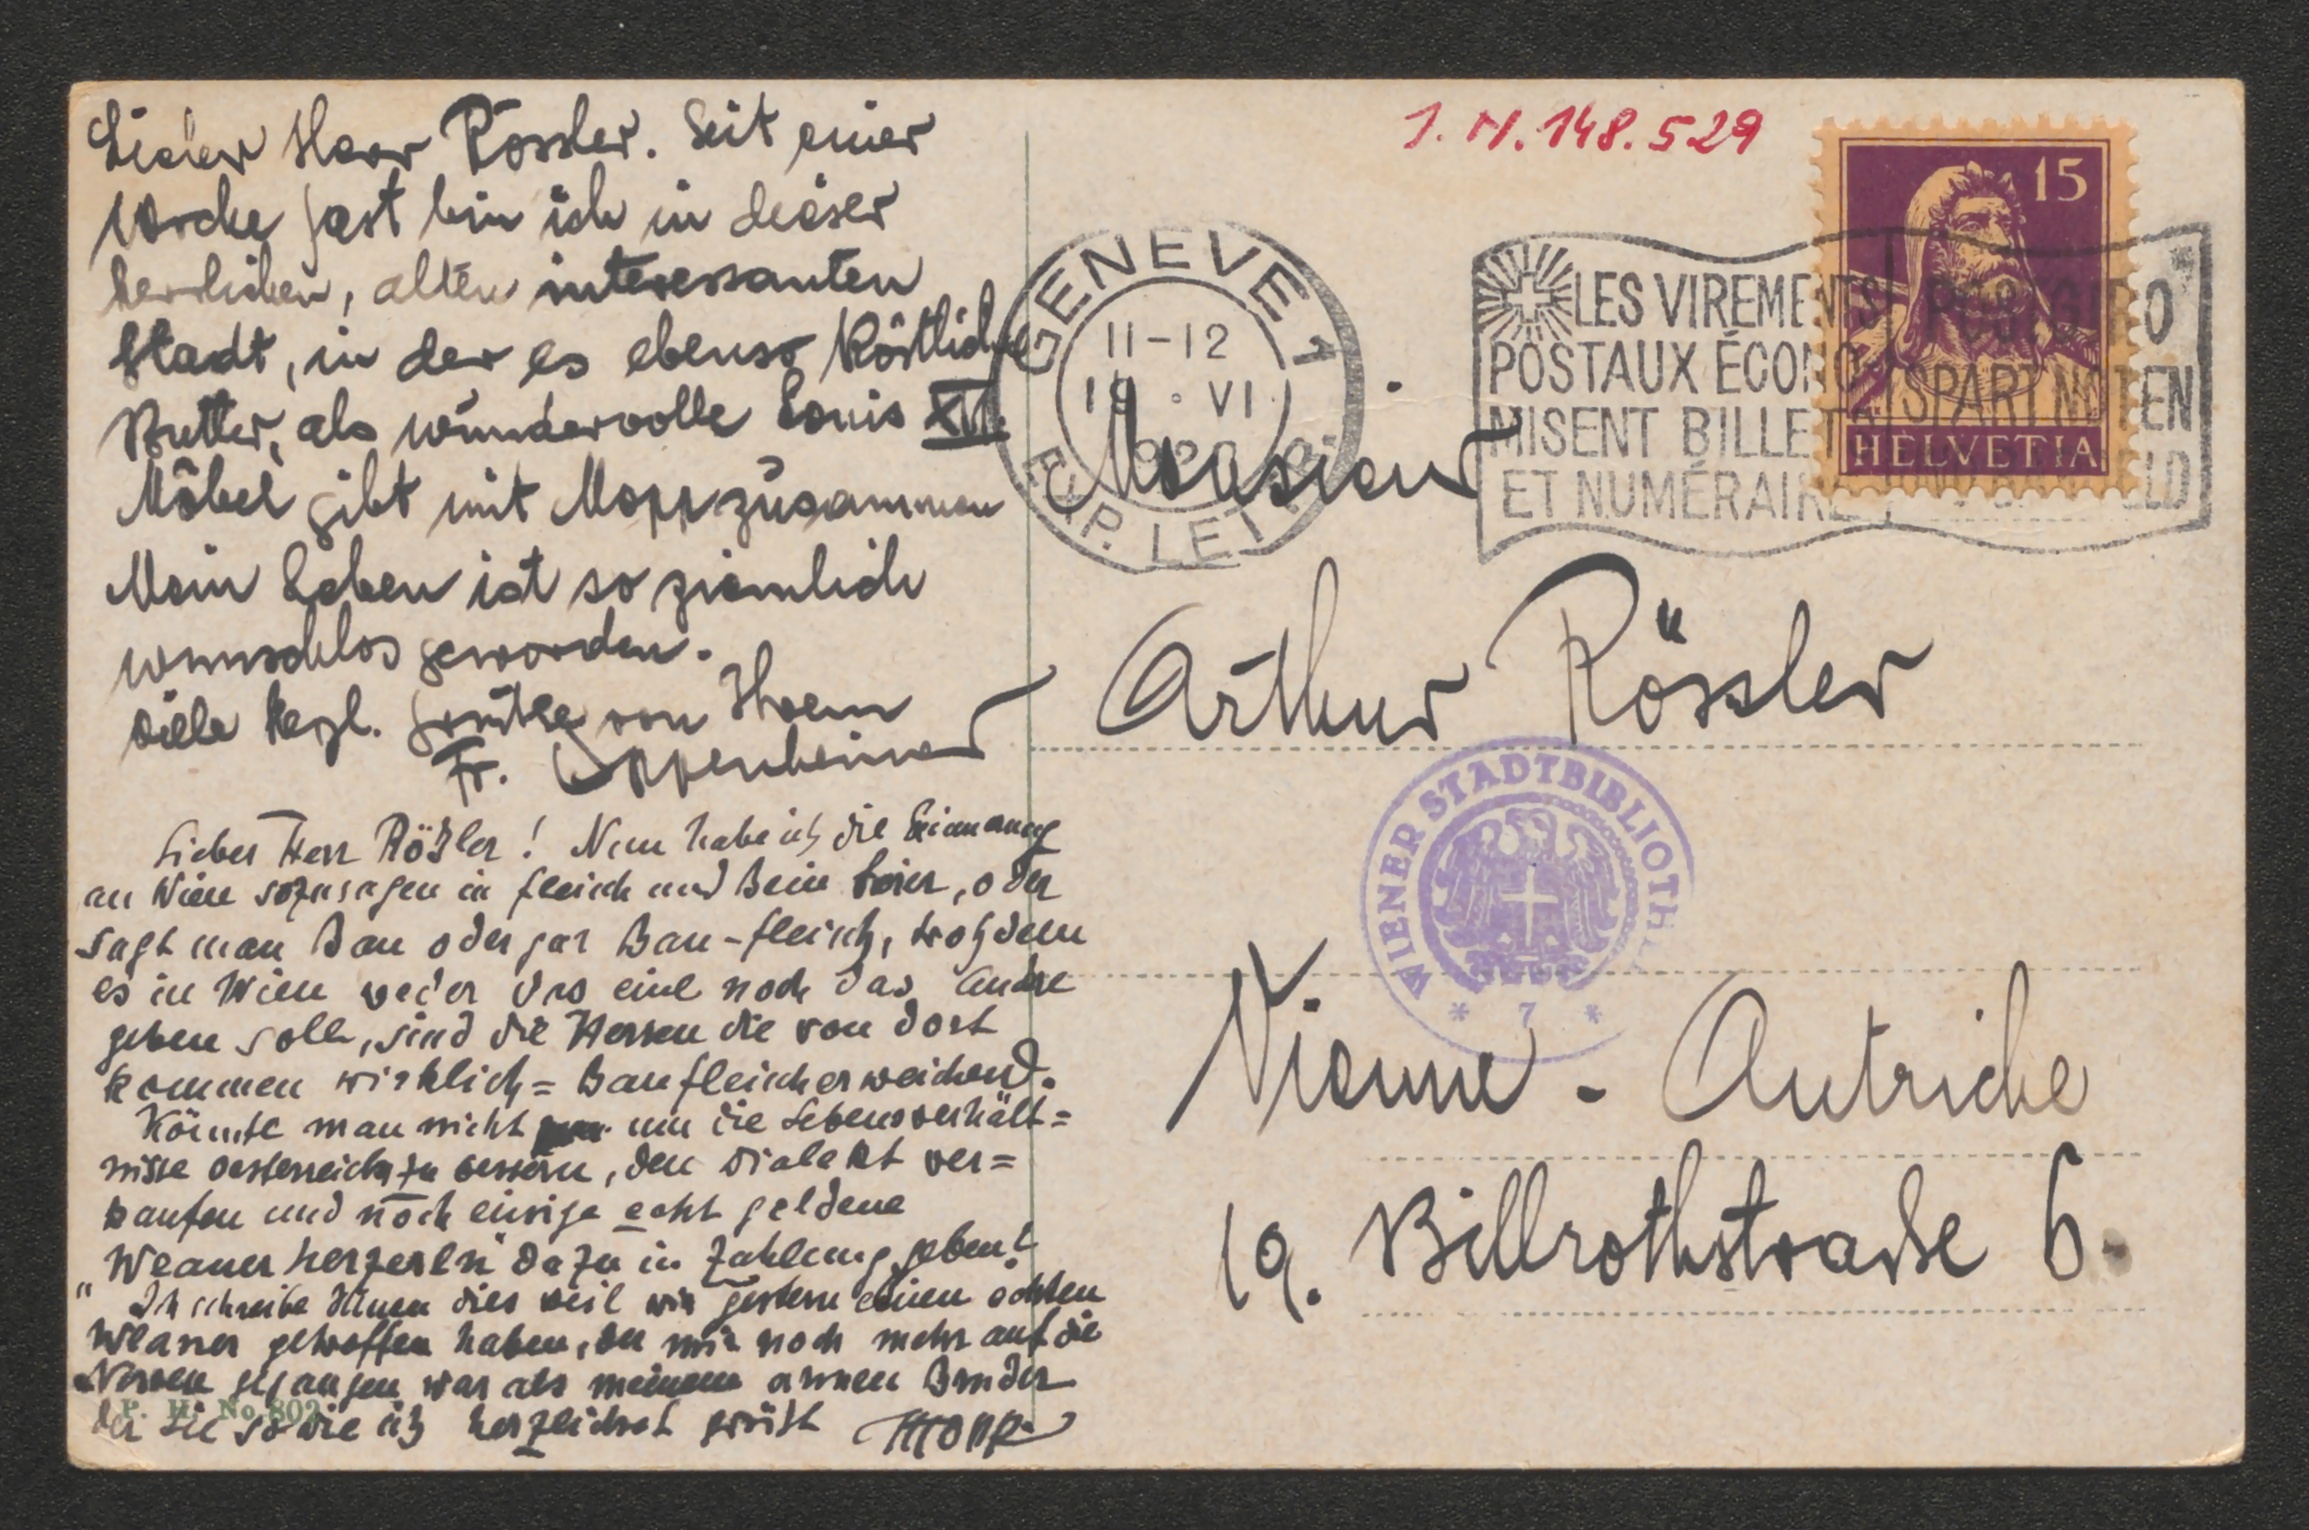 Lieber Herr Rössler. Seit einer
Woche fast bin ich in dieser
herrlichen, alten interessanten
Stadt, in der es ebenso köstliche
Butter, als wundervolle Louis
Möbel gibt mit Mopp zusammen
Mein Leben ist so ziemlich
wunschlos geworden.
Viele herzl. Grüße von Ihrem
Fr. Oppenheimer
Lieber Herr Rößler! Nun habe ich die Erinnerung
an Wien sozusagen in Fleisch und Bein hier, oder
sagt man Bau oder gar Bau-fleisch, trotzdem
es in Wien weder das eine noch das andre
geben soll, sind die Herren die von dort
kommen wirklich = Baufleischerweichend.
Könnte man nicht um die Lebensverhält=
nisse Oesterreichs zu bessern, den Dialekt ver=
kaufen und noch einige echt goldene
"Weaner Herzerln" dazu in Zahlung geben!
Ich schreibe Ihnen dies weil wir gestern einen echten
Weaner getroffen haben, der mir noch mehr auf die
Nerven gegangen war als meinem armen Bruder
der Sie sowie ich herzlichst grüßt MOPP
P. H. No 802
I. N. 148.529
15
HELVETIA
GENEVE 1
11-12
19 · VI
EXP. LETTR.
LES VIREMENTS
POSTAUX ÉCONO-
MISENT BILLETS
ET NUMÉRAIRE
POSTGIRO
SPART NOTEN
Monsieur
Arthur Rössler
WIENER STADTBIBLIOTHEK
* 7 *
Vienne - Autriche
19. Billrothstraße 6.